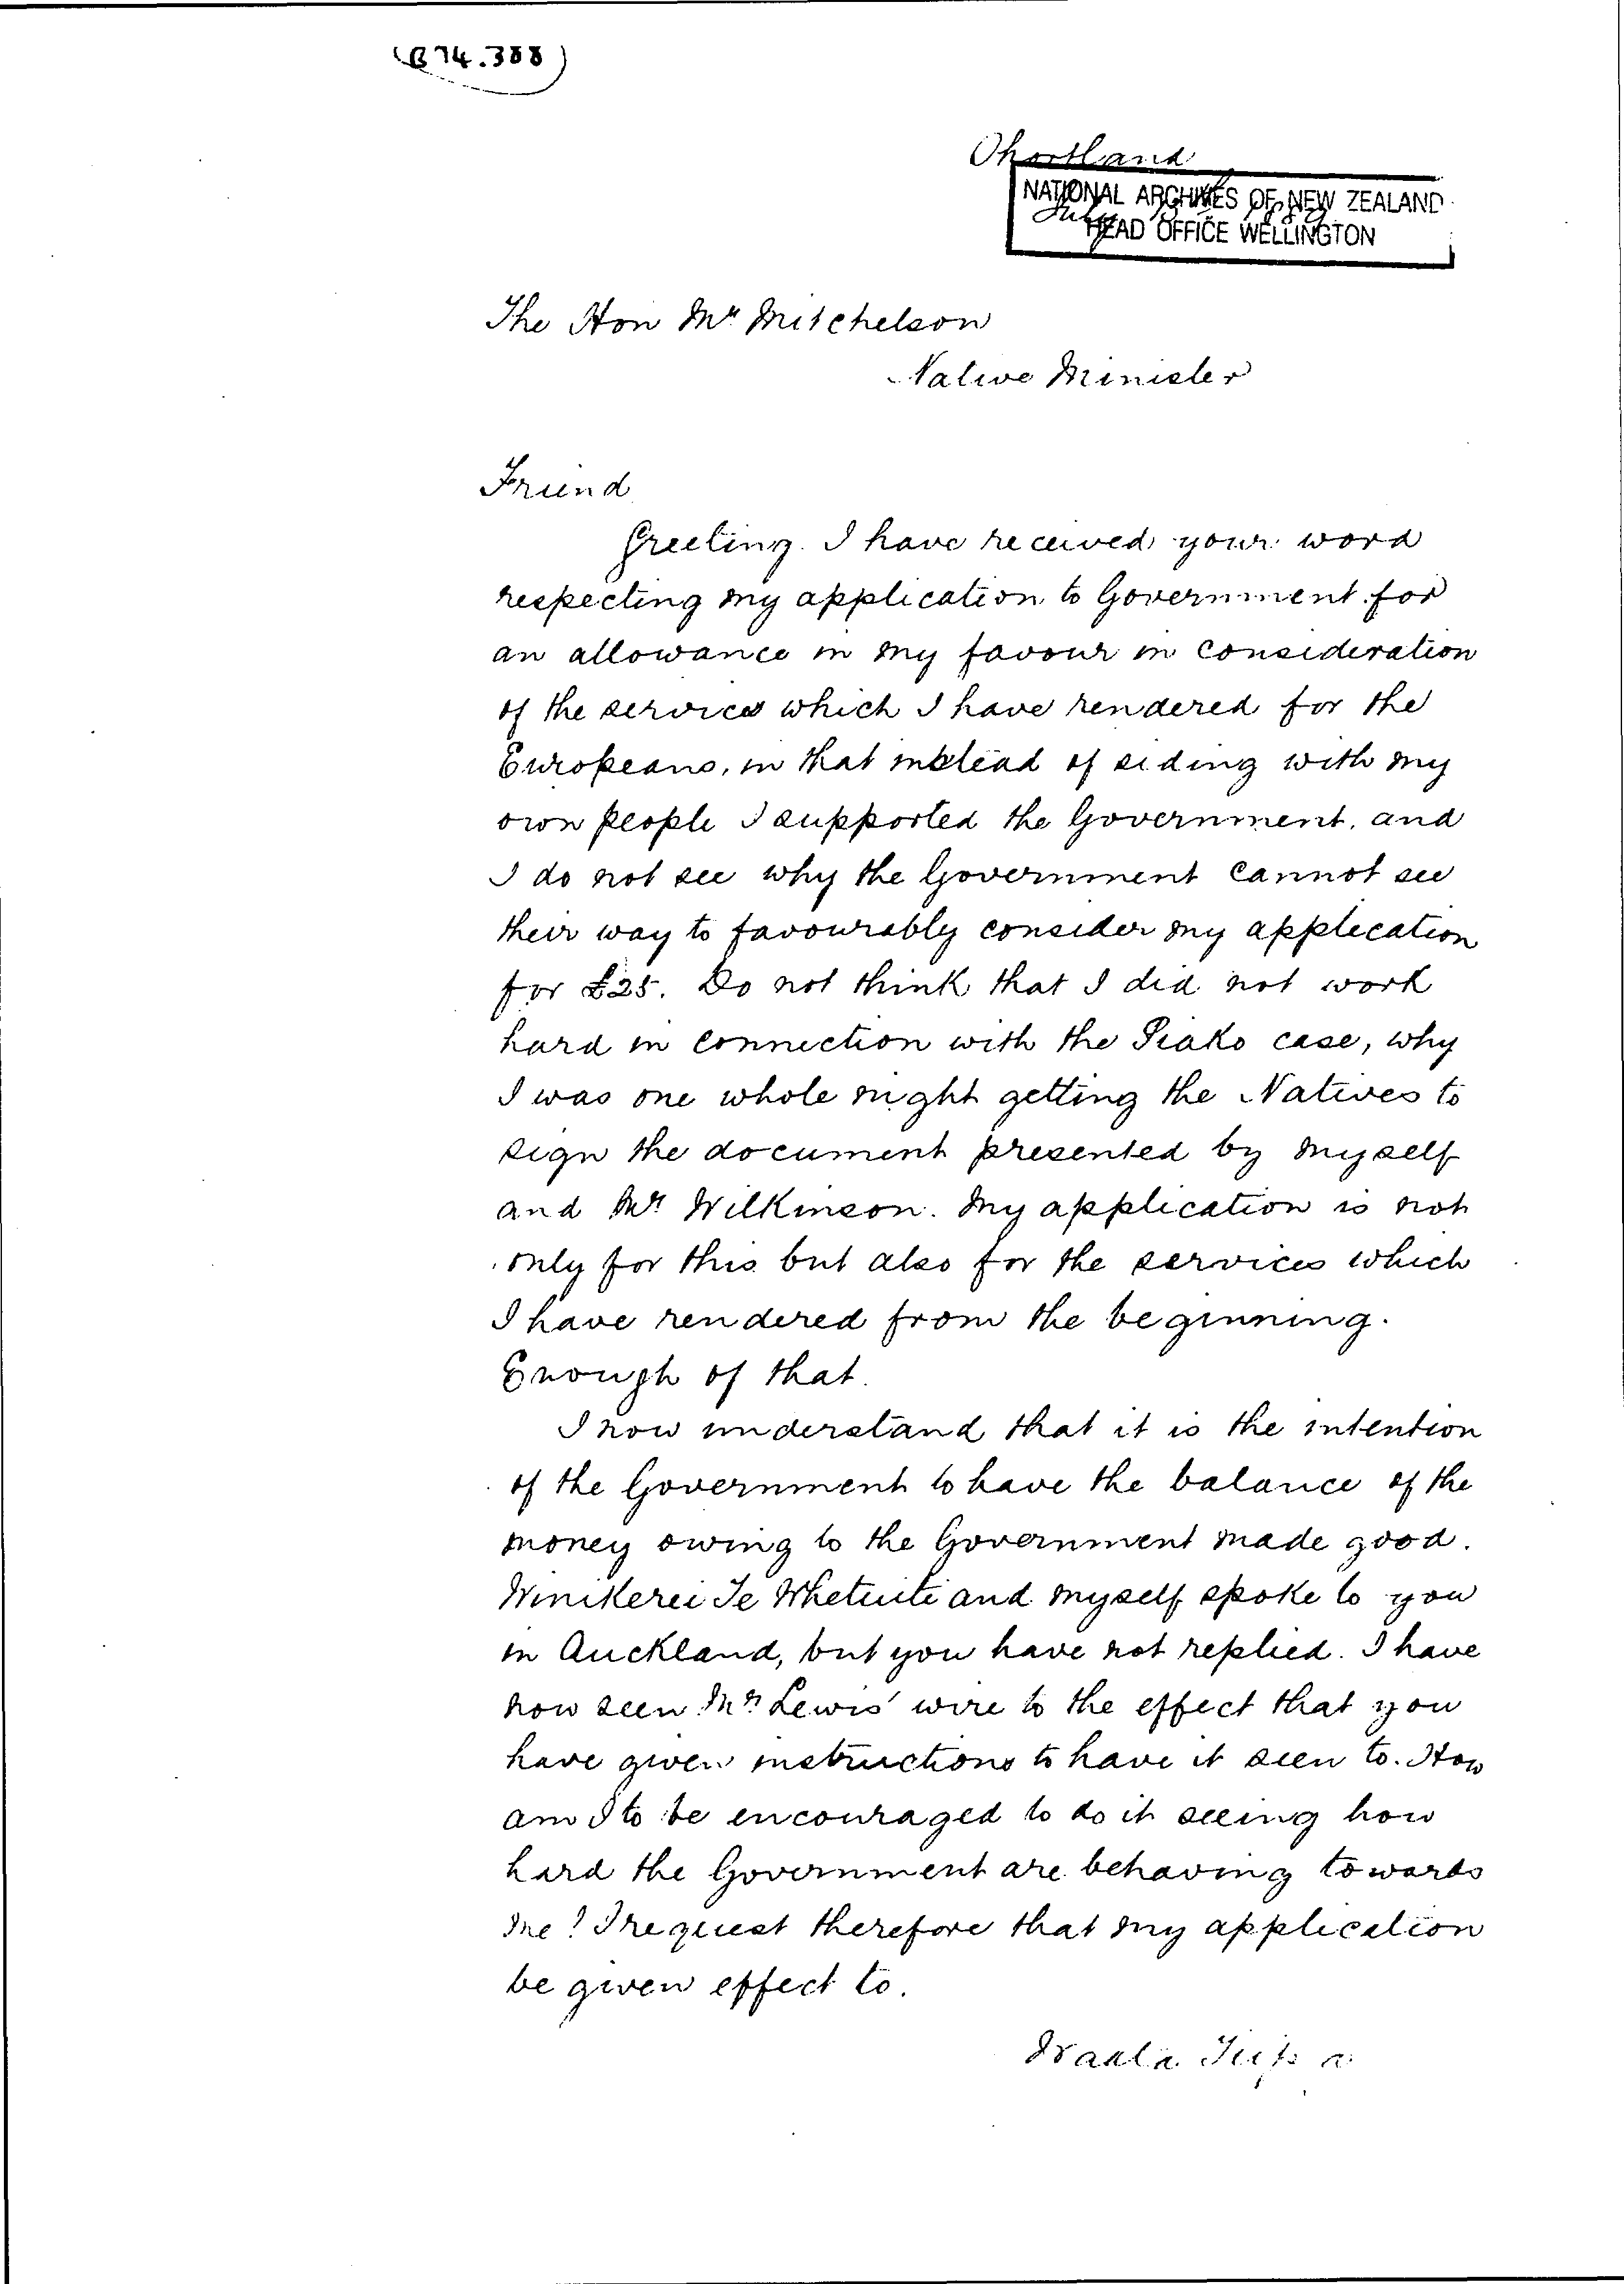 (B 74.388)
Shortland
NATIONAL ARCHIVES OF NEW ZEALAND
July
HEAD OFFICE WELLINGTON
The Hon Mr Mitchelson
Native Minister
Friend
Greeting. I have received your word
respecting my application to Government for
an allowance in my favour in consideration
of the services which I have rendered for the
Europeans, in that instead of siding with my
own people I supported the Government, and
I do not see why the Government cannot see
their way to favourably consider my application
for £25. Do not think that I did not work
hard in connection with the Piako case, why
I was one whole night getting the Natives to
sign the document presented by myself
and Mr Wilkinson. My application is not
only for this but also for the services which
I have rendered from the beginning.
Enough of that.
I now understand that it is the intention
of the Government to have the balance of the
money owing to the Government made good.
Te and myself spoke to you
in Auckland, but you have not replied. I have
now seen Mr Lewis' wire to the effect that you
have given instructions to have it seen to. How
am I to be encouraged to do it seeing how
hard the Government are behaving towards
me! I request therefore that my application
be given effect to.